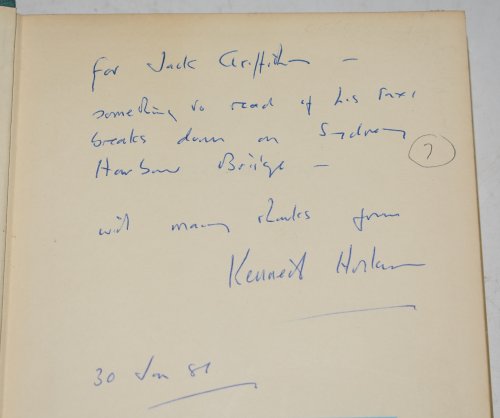 For Jack Griffith —
something to read if his taxi
breaks down on Sydney
Harbour Bridge —
?
with many thanks from
Kenneth
30 Jan 81